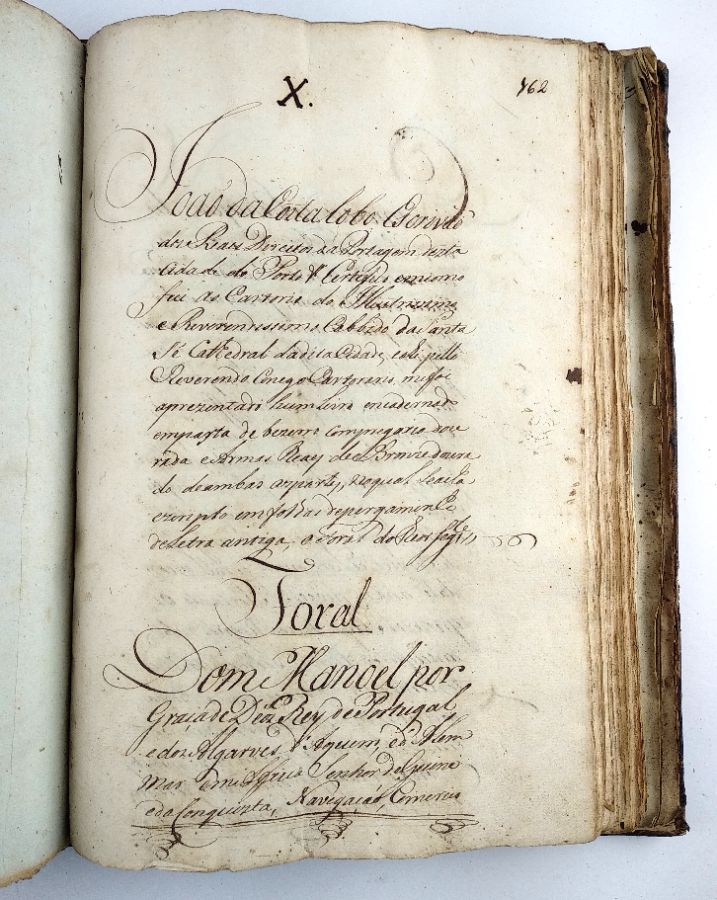 X.
162
João da Costa Lobo Escrivão
dos Reaes Direitos da Portagem desta
Cidade do Porto &ª Certefico em como
fui ao Cartorio do Illustrissimo
e Reverendissimo Cabbido da Santa
Sé Cathedral da dita Cidade, e ahi pello
Reverendo Conego Cartorario, me foi
aprezentado hum livro encadernado
em pasta de bezerro com pregaria dou
rada e Armas Reaes de Bronze doura
do de ambas as partes, no qual se acha
escripto em folhas de pergaminho
de Letra antiga, o Foral do theor seg.te
Foral
Dom Manoel por
Graça de Deos Rey de Portugal
e dos Algarves, d'Aquem, e d'Alem
Mar em Affrica Senhor de Guine
e da Conquista, Navegação, Comercio